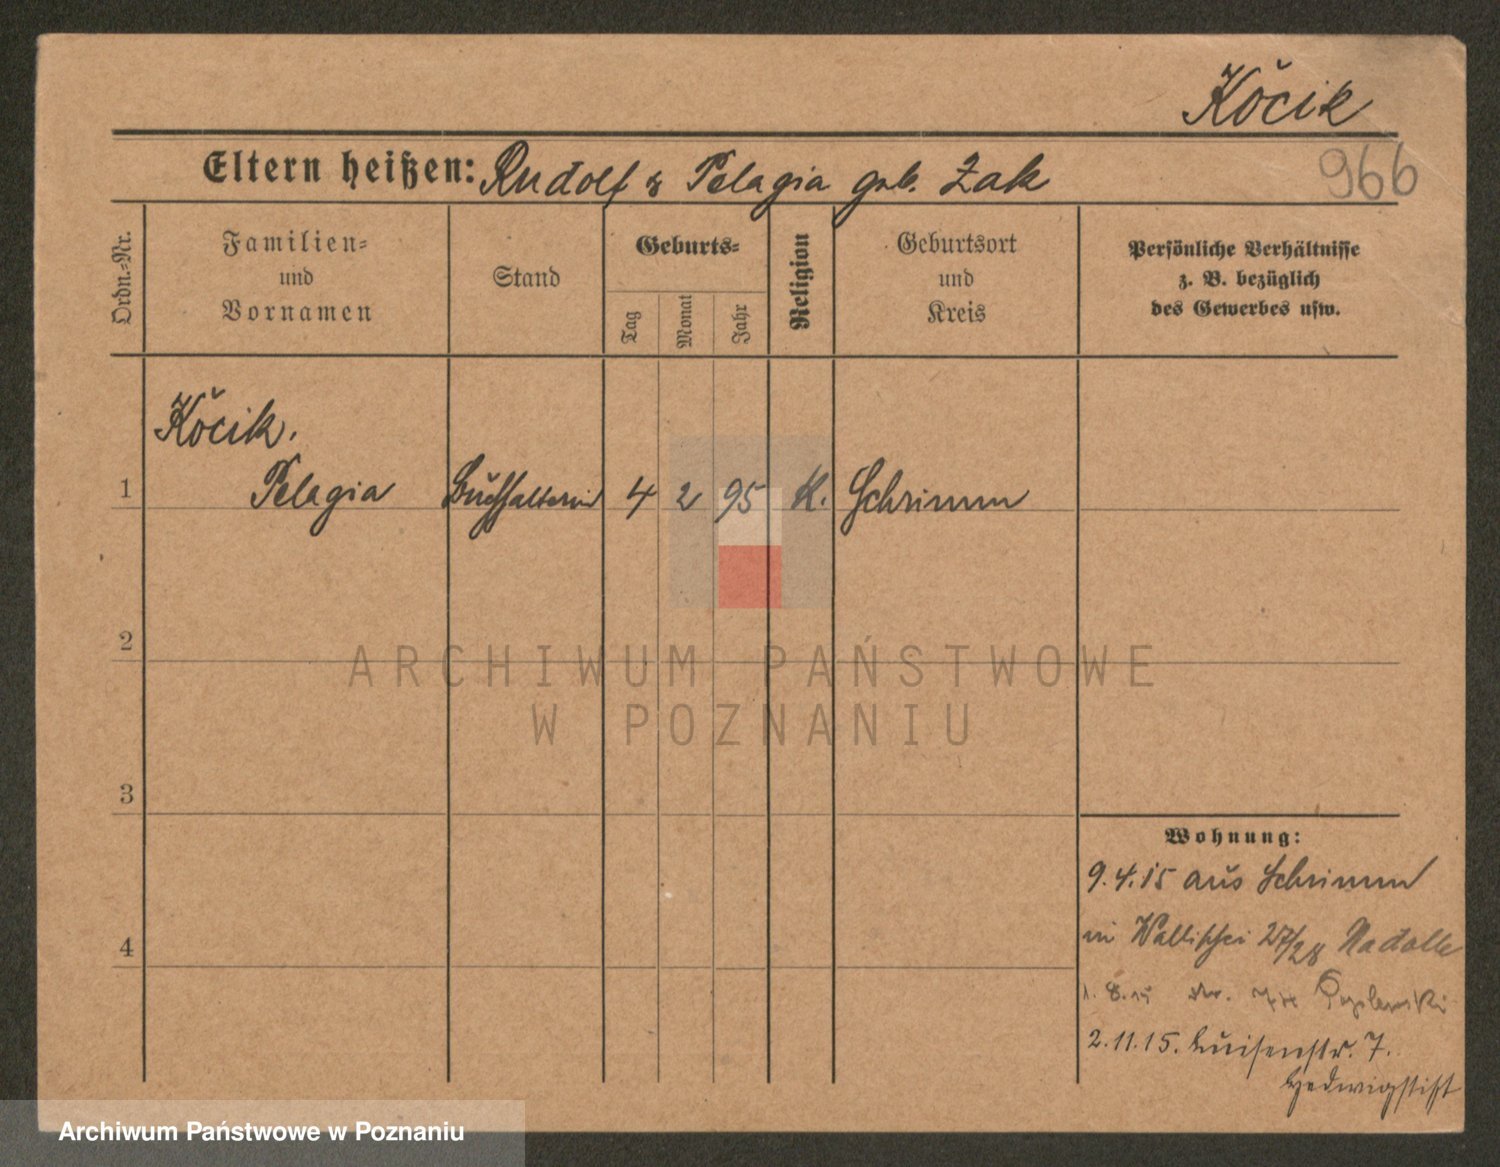 Kočik
966
Eltern heißen: Rudolf & Pelagia geb. Zak
Ordn.-Nr.
Familien-
und
Vornamen
Stand
Geburts-
Tag
Monat
Jahr
Religion
Geburtsort
und
Kreis
Persönliche Verhältnisse
z. B. bezüglich
des Gewerbes usw.
Kočik.
1 Pelagia Buchhalterin 4 2 95 K. Schrimm
2
3
4
ARCHIWUM PAŃSTWOWE
W POZNANIU
Wohnung:
9.4.15 aus Schrimm
in Wallischei 27/28 Nadolle
2.11.15. Luisenstr. 7.
Hedwigstift
Archiwum Państwowe w Poznaniu